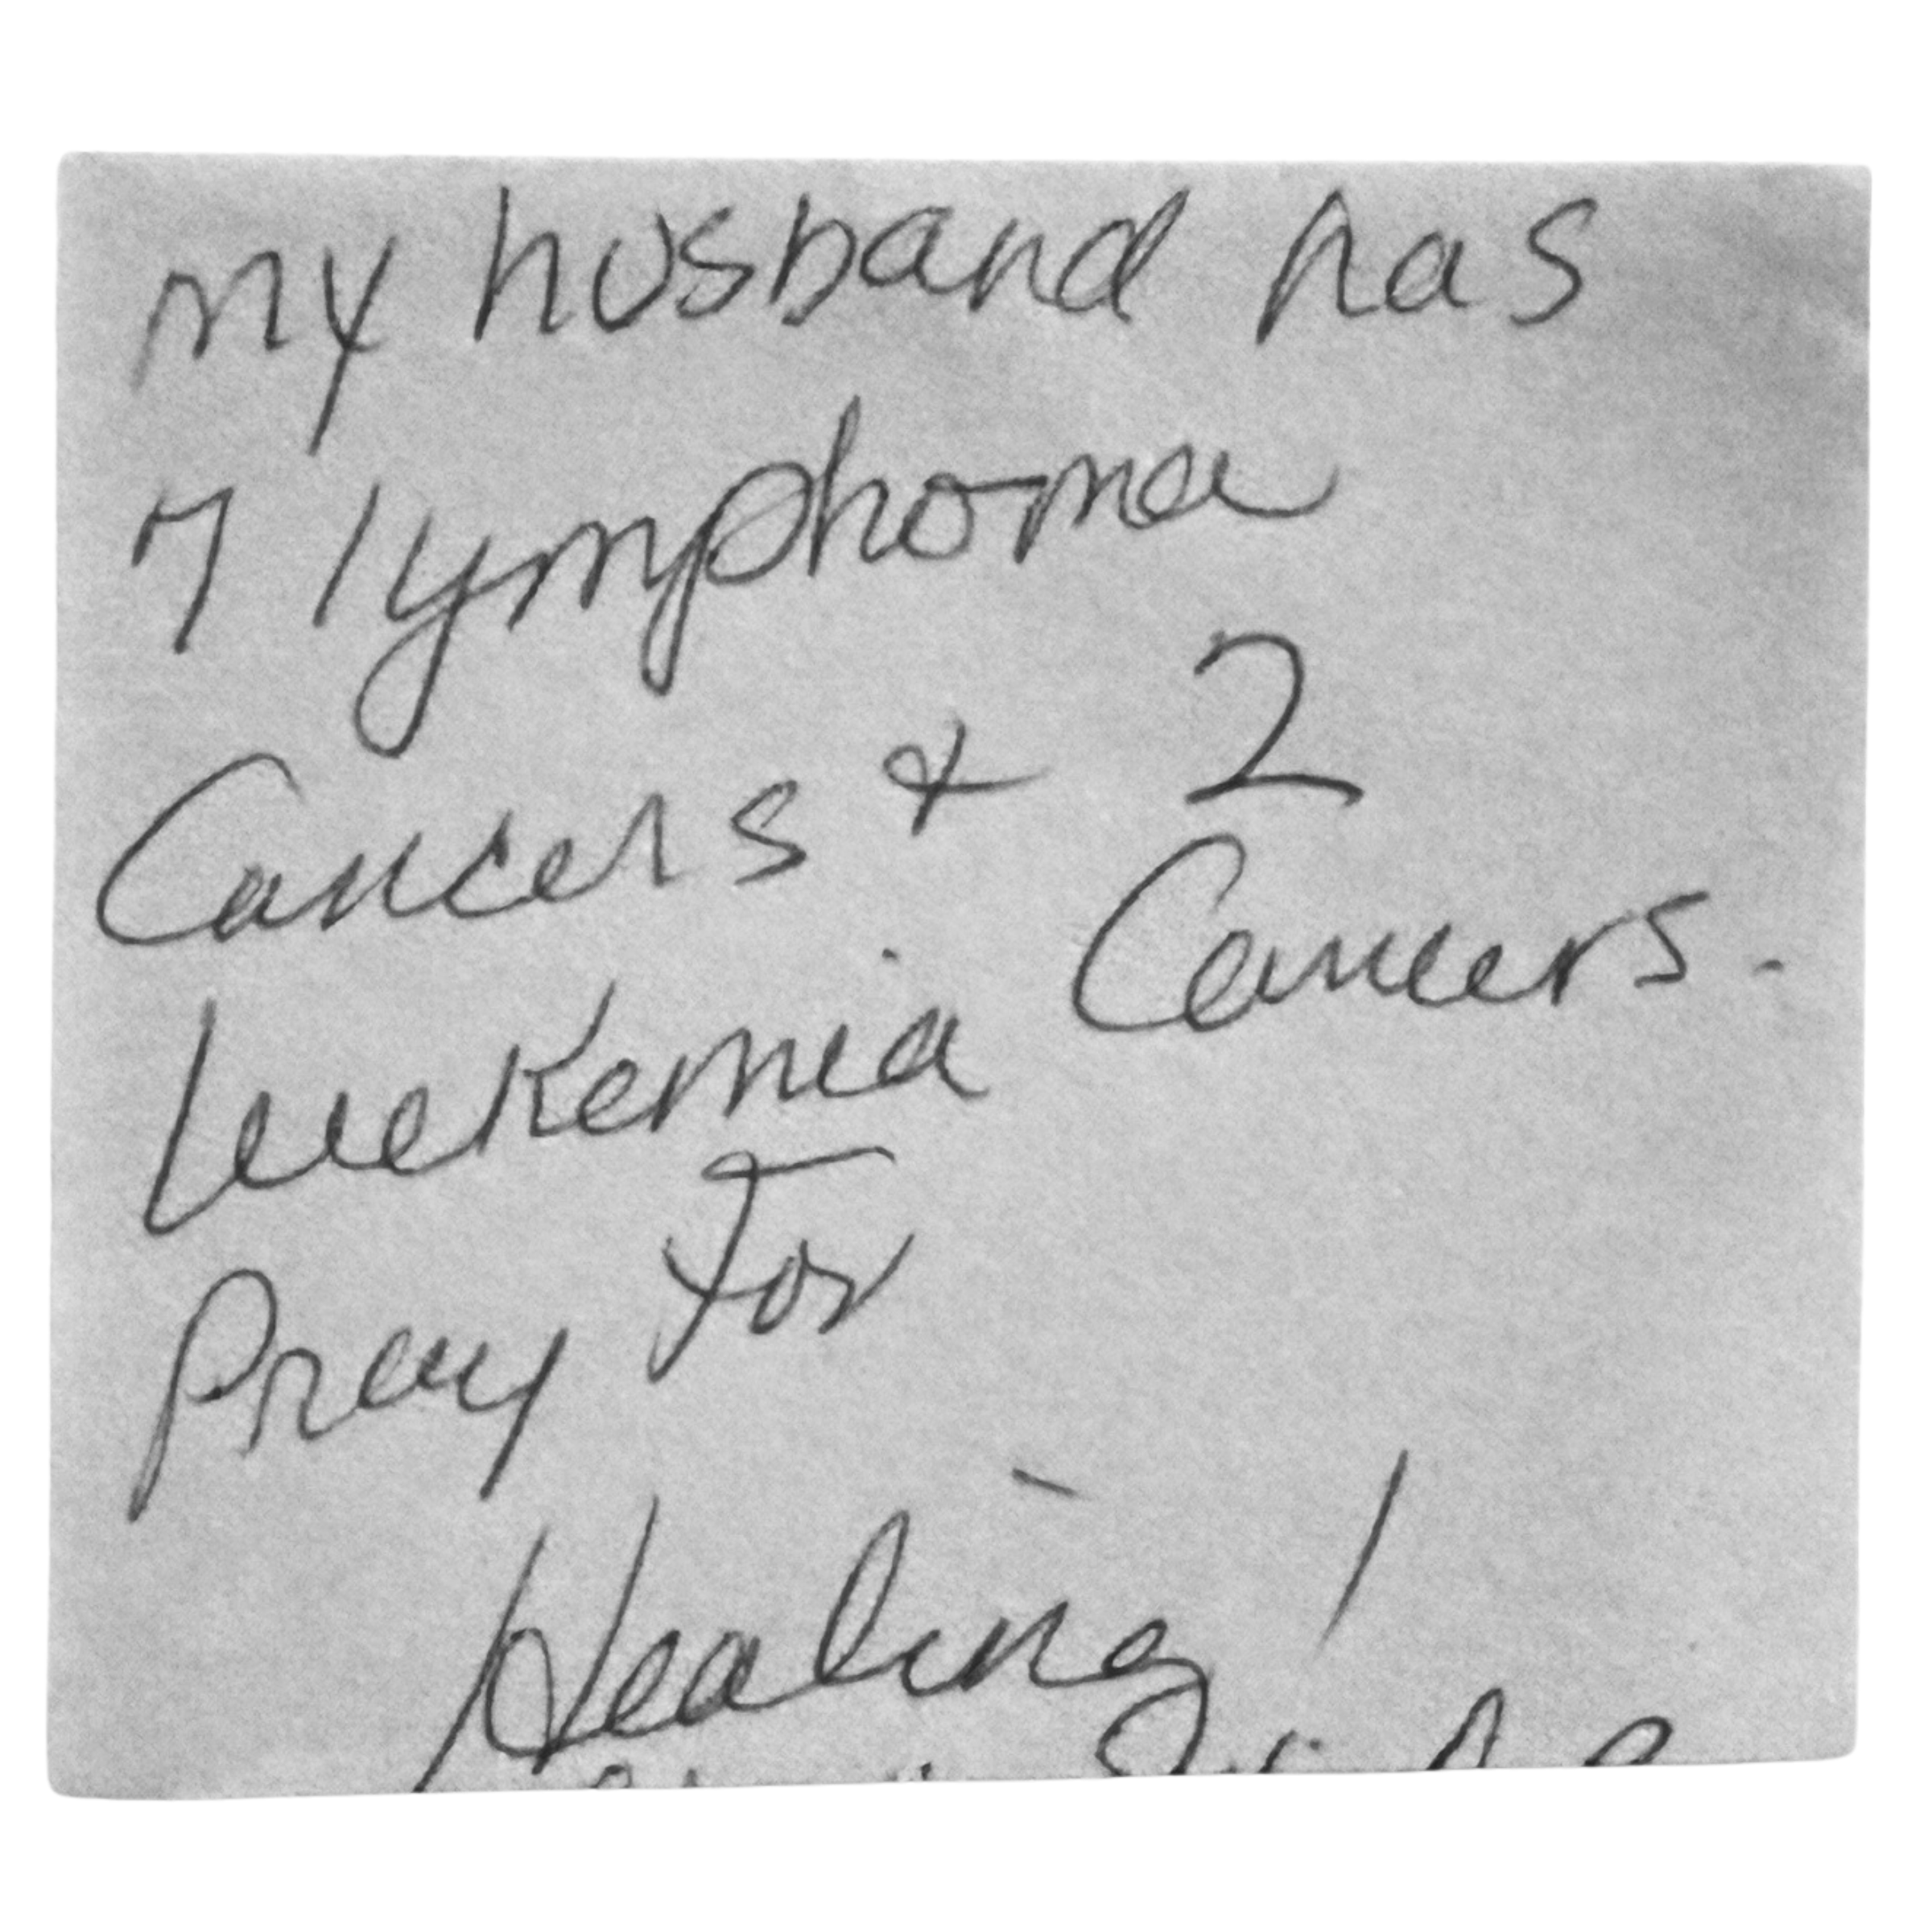 my husband has
7 lymphoma
Cancers & 2
Leukemia Cancers.
Pray for
Healing!